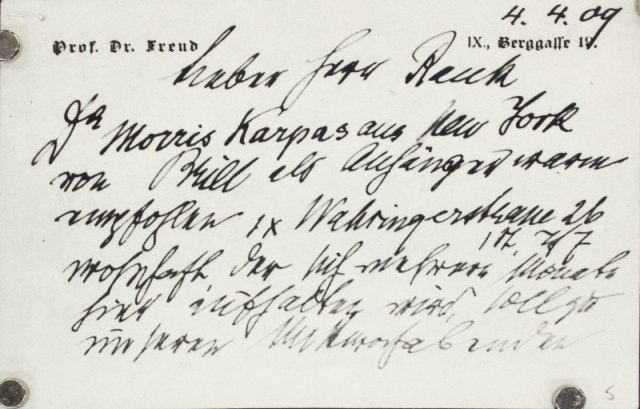 4. 4. 09
Prof. Dr. Freud IX., Berggasse 19.
Lieber Herr Rank
Dr Morris Karpas aus New York
von Brill als Anhänger warm
empfohlen IX Wahringerstrasse 26
wohnhaft, der sich mehrere Monate
hier aufhalten wird, soll zu
unseren Mittwochabenden